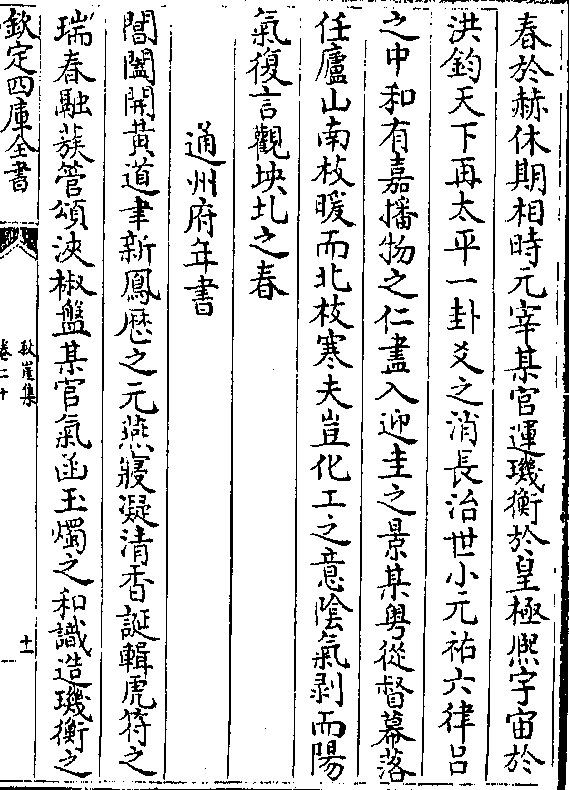 春於赫休期相時元宰某官運璣衡於皇極熈宇宙於
洪鈞天下再太平一卦爻之消長治世小元祐六律吕
之中和有嘉播物之仁盡入迎圭之景某粤從督幕落
任廬山南枝暖而北枝寒夫豈化工之意陰氣剥而陽
氣復言觀坱圠之春
通州府年書
閶闔開黄道聿新鳳厯之元燕寢凝清香誕輯虎符之
瑞春融蔟管頌浹椒盤某官氣函玉燭之和識造璣衡之
欽定四庫全書
秋崖集
卷二十
十一